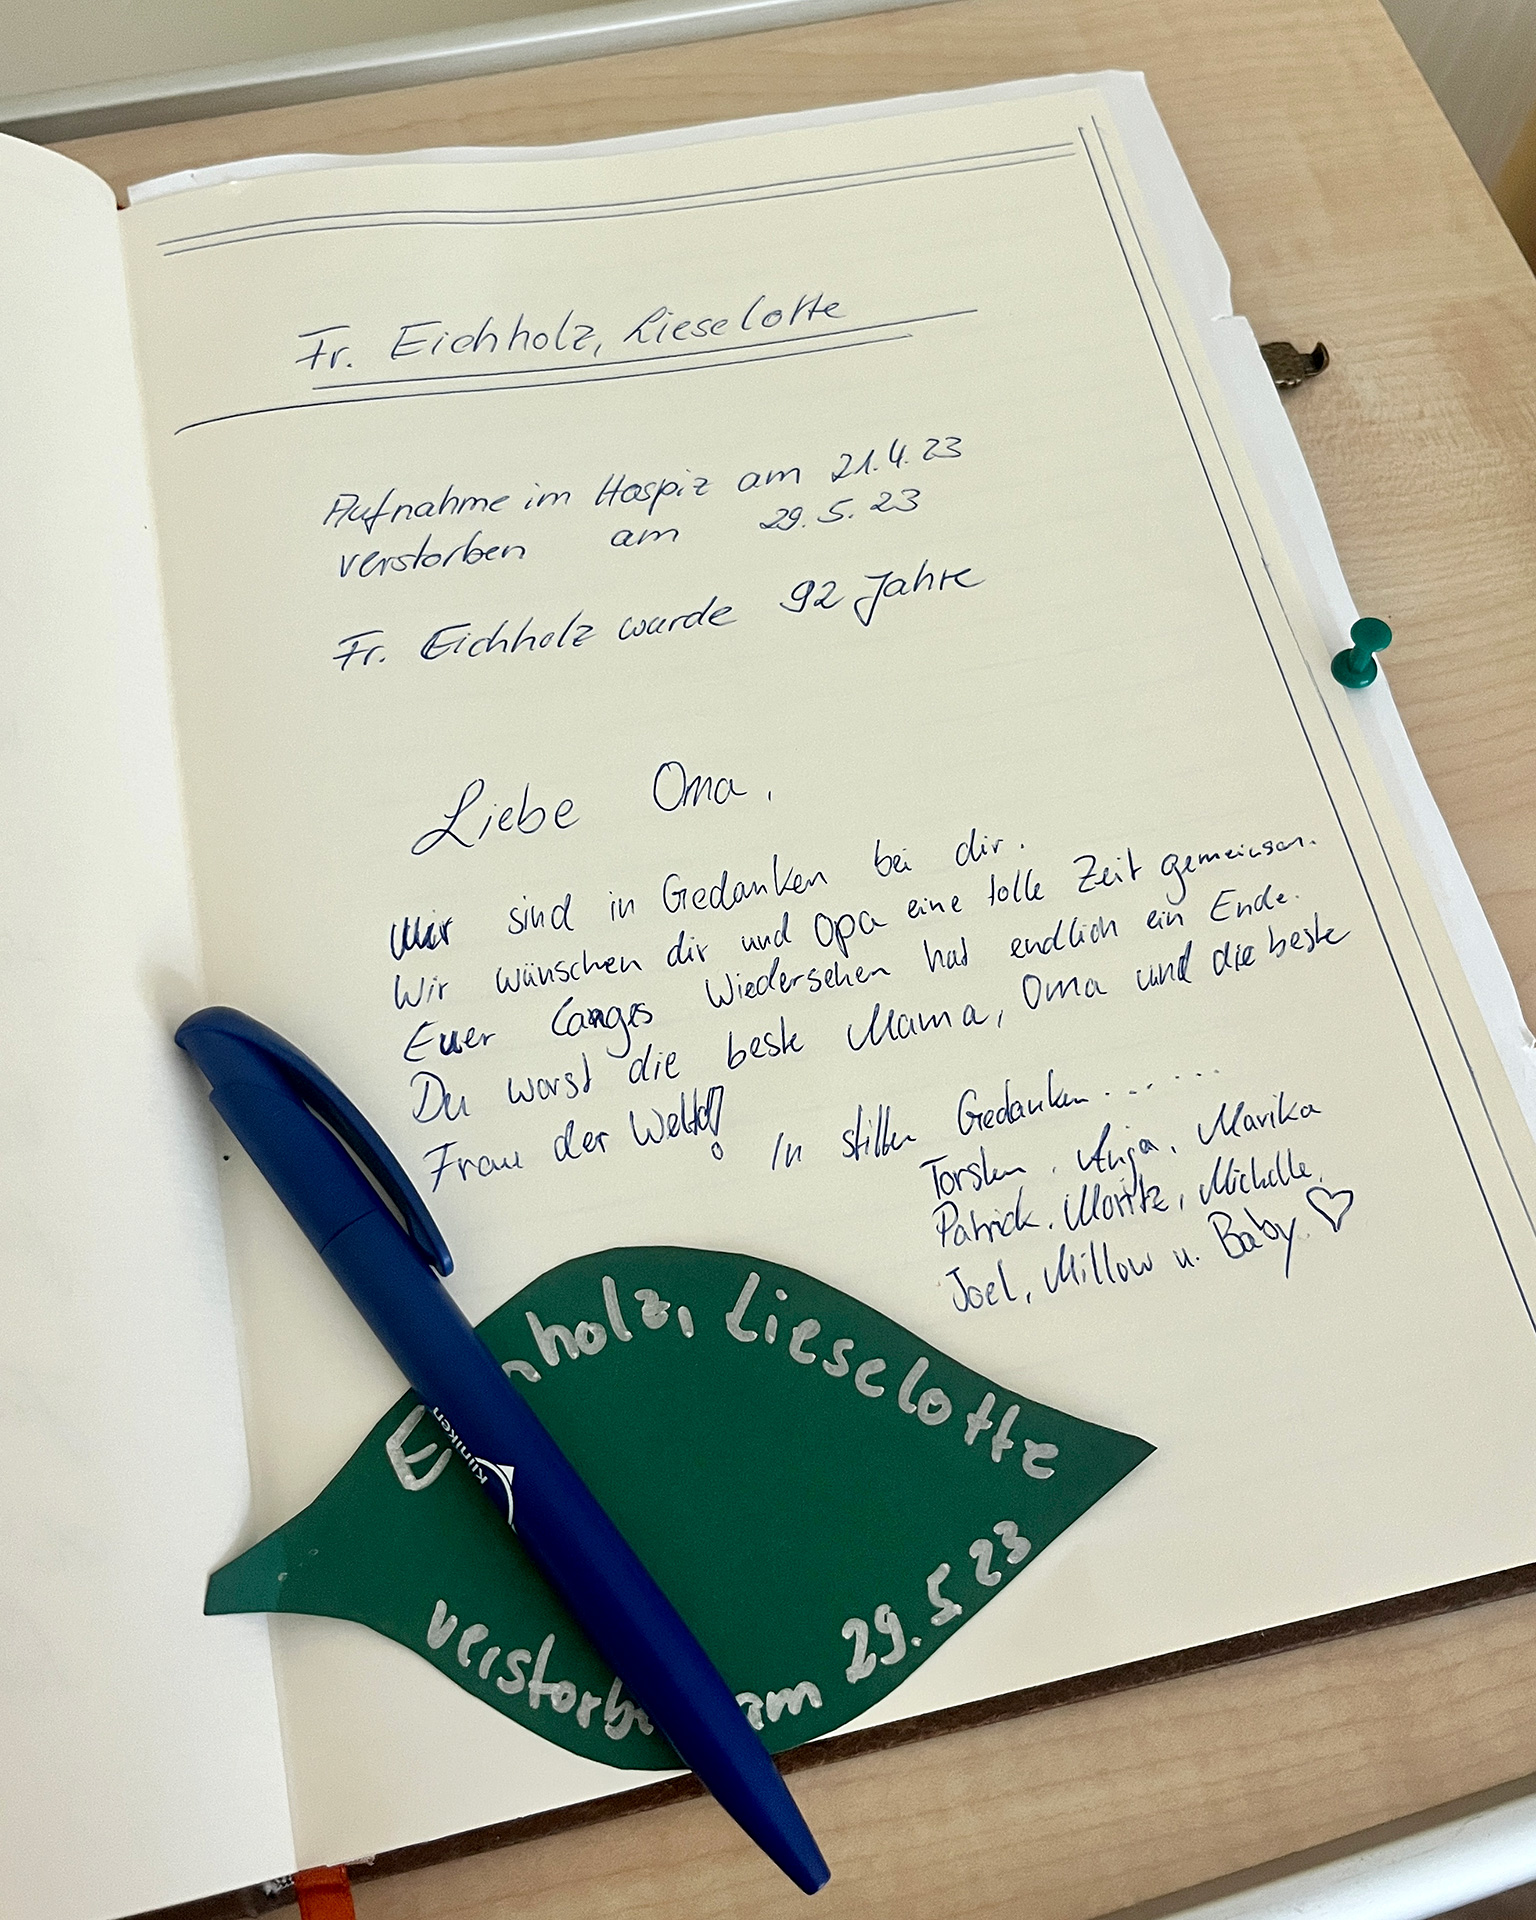 Fr. Eichholz, Lieselotte
Aufnahme im Hospiz am 21.4.23
verstorben am 29.5.23
Fr. Eichholz wurde 92 Jahre
Liebe Oma,
Wir sind in Gedanken bei dir.
Wir wünschen dir und Opa eine tolle Zeit gemeinsam.
Euer langes Wiedersehen hat endlich ein Ende.
Du warst die beste Mama, Oma und die beste
Frau der Welt!
In stillen Gedanken.......
Torsten, Anja, Marika
Patrick, Moritz, Michelle,
Joel, Millow u. Baby ♡
E holz, Lieselotte
kliniken
verstorbe am 29.5.23